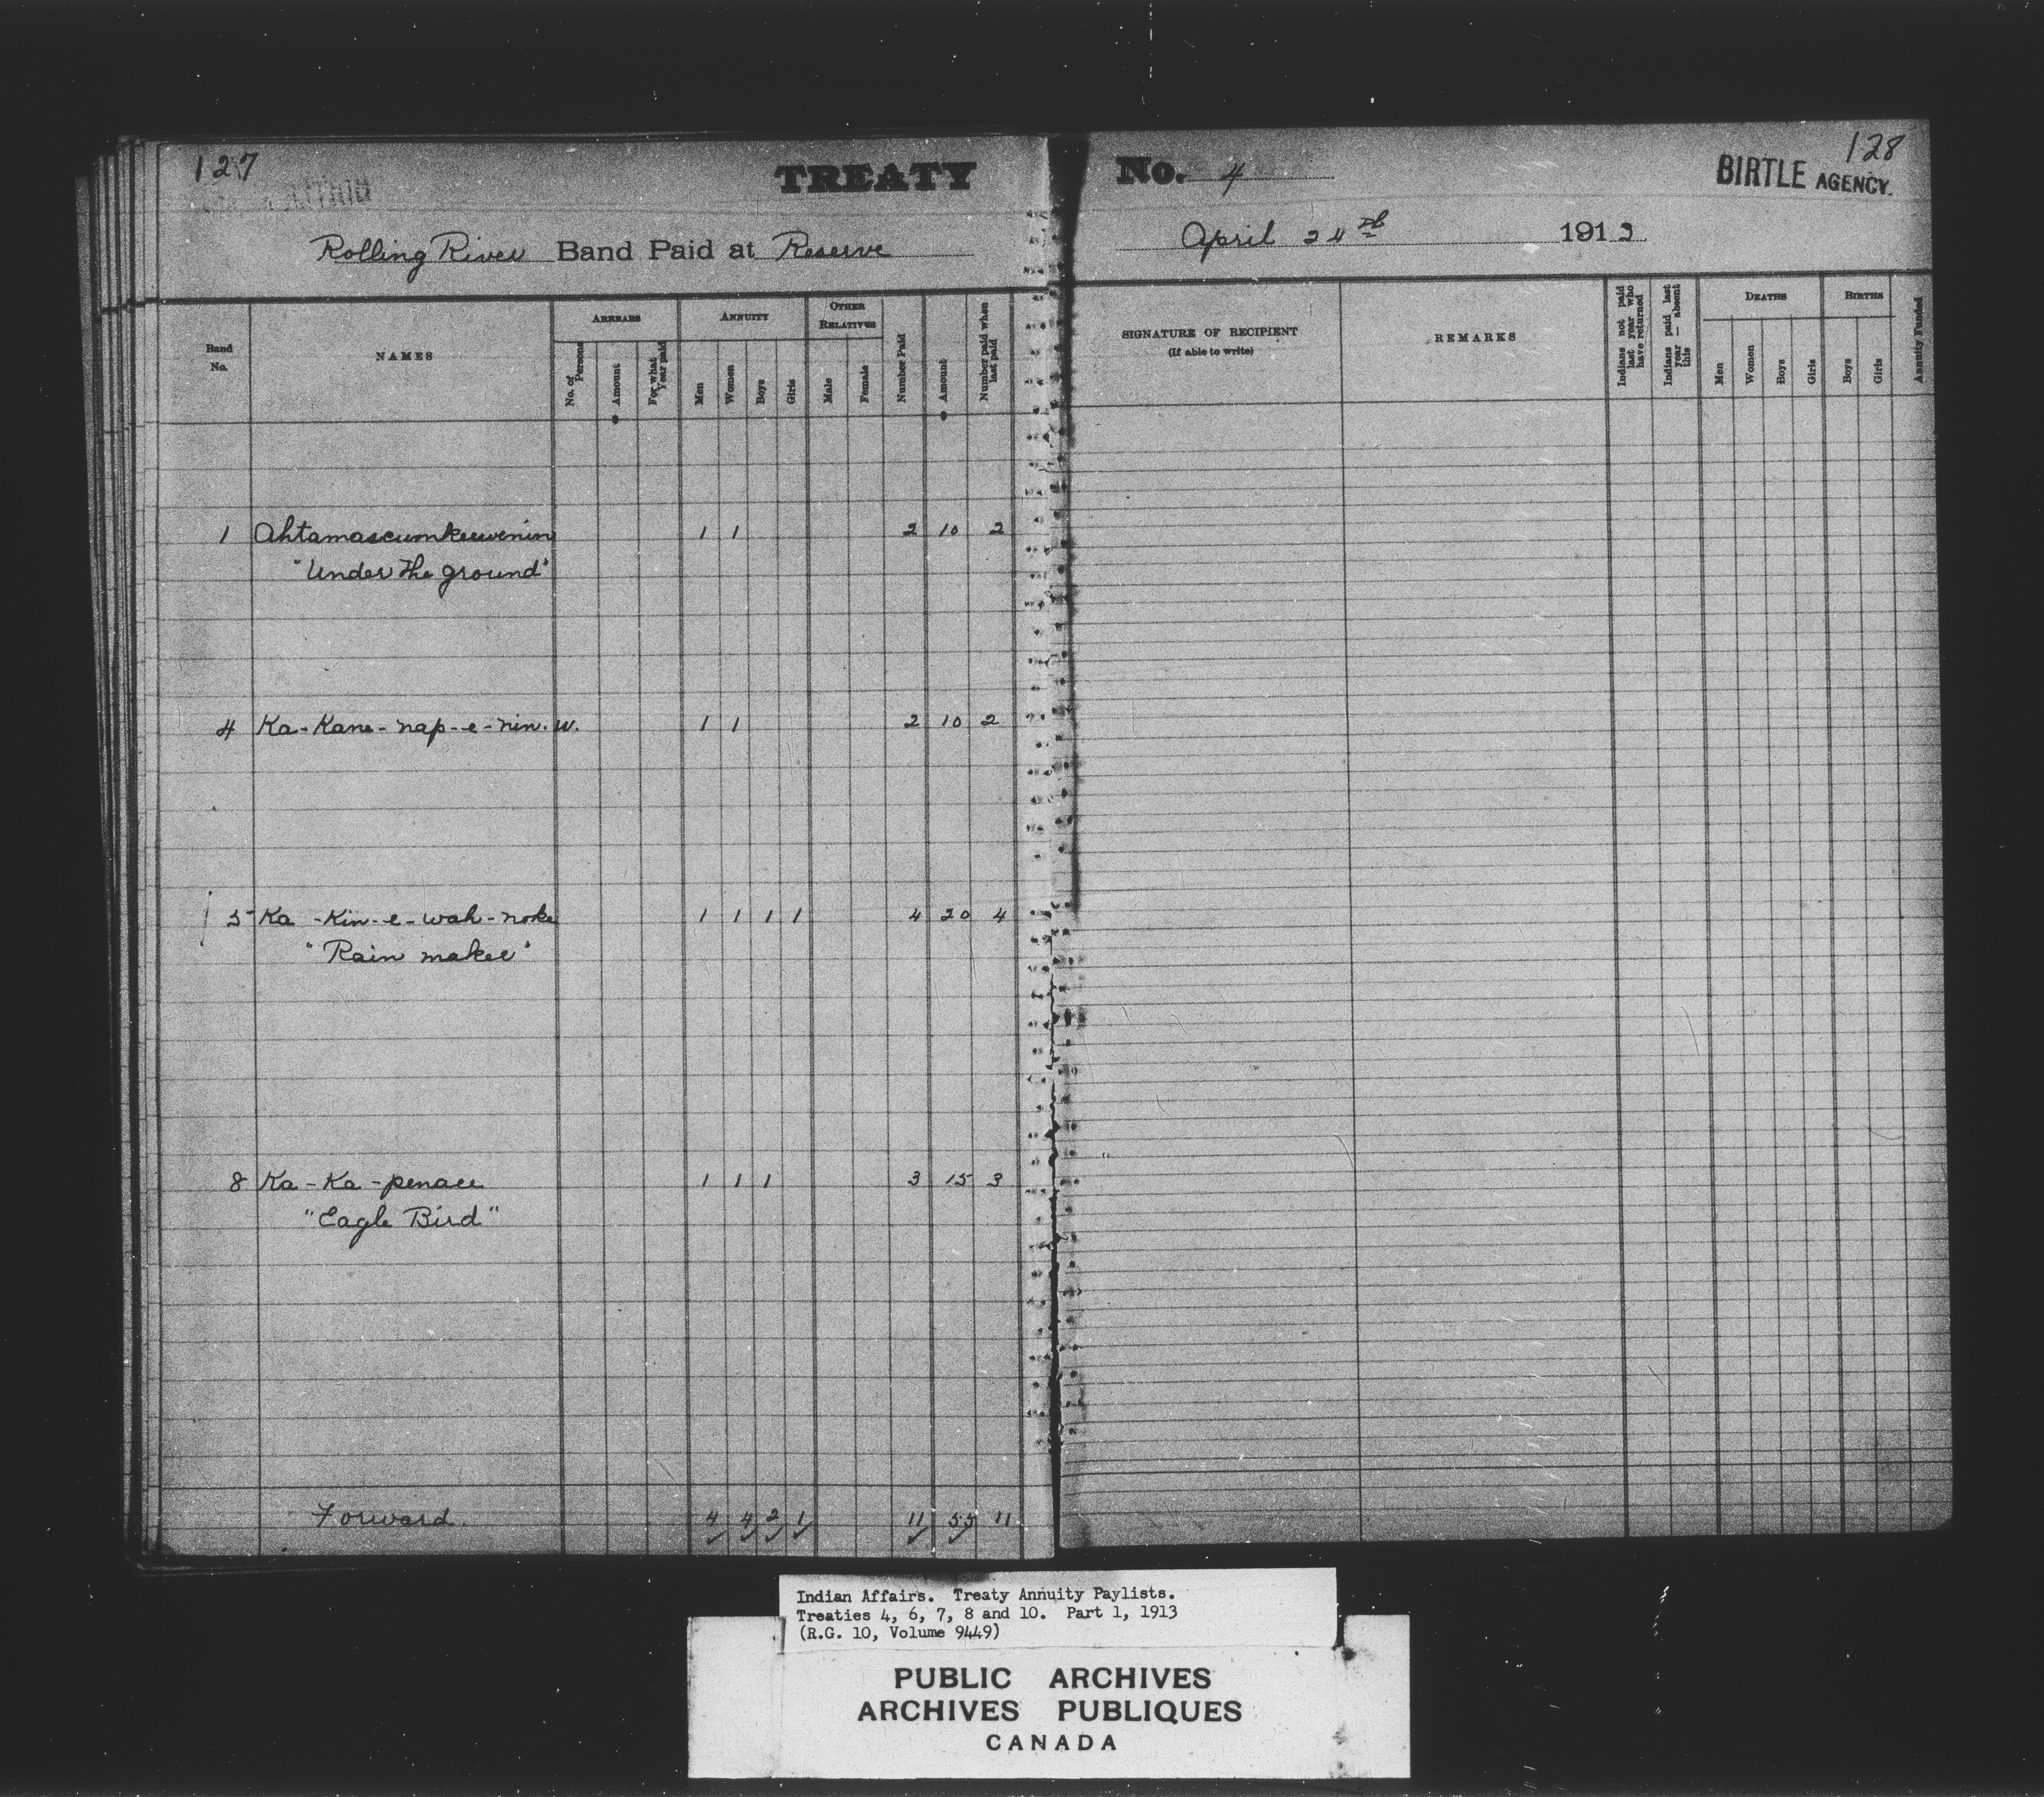 127
TREATY No. 4
128
BIRTLE AGENCY.
Rolling River Band Paid at Reserve
April 24th 1913
Band No.
NAMES
ARREARS
No. of Persons
Amount
For what Year paid
ANNUITY
Men
Women
Boys
Girls
OTHER RELATIVES
Male
Female
Number Paid
Amount
Number paid when last paid
SIGNATURE OF RECIPIENT
(If able to write)
REMARKS
Indians not paid last year who have returned
Indians paid last year — absent this
DEATHS
Men
Women
Boys
Girls
BIRTHS
Boys
Girls
Annuity Funded
1 Ahtamascumkeewenin 1 1 2 10 2
"Under the ground"
4 Ka-Kane-nap-e-nin.w. 1 1 2 10 2
5 Ka-Kin-e-wah-noke 1 1 1 1 4 20 4
"Rain maker"
8 Ka-Ka-penace 1 1 1 3 15 3
"Eagle Bird"
Forward. 4 4 2 1 11 55 11
Indian Affairs. Treaty Annuity Paylists.
Treaties 4, 6, 7, 8 and 10. Part 1, 1913
(R.G. 10, Volume 9449)
PUBLIC ARCHIVES
ARCHIVES PUBLIQUES
CANADA